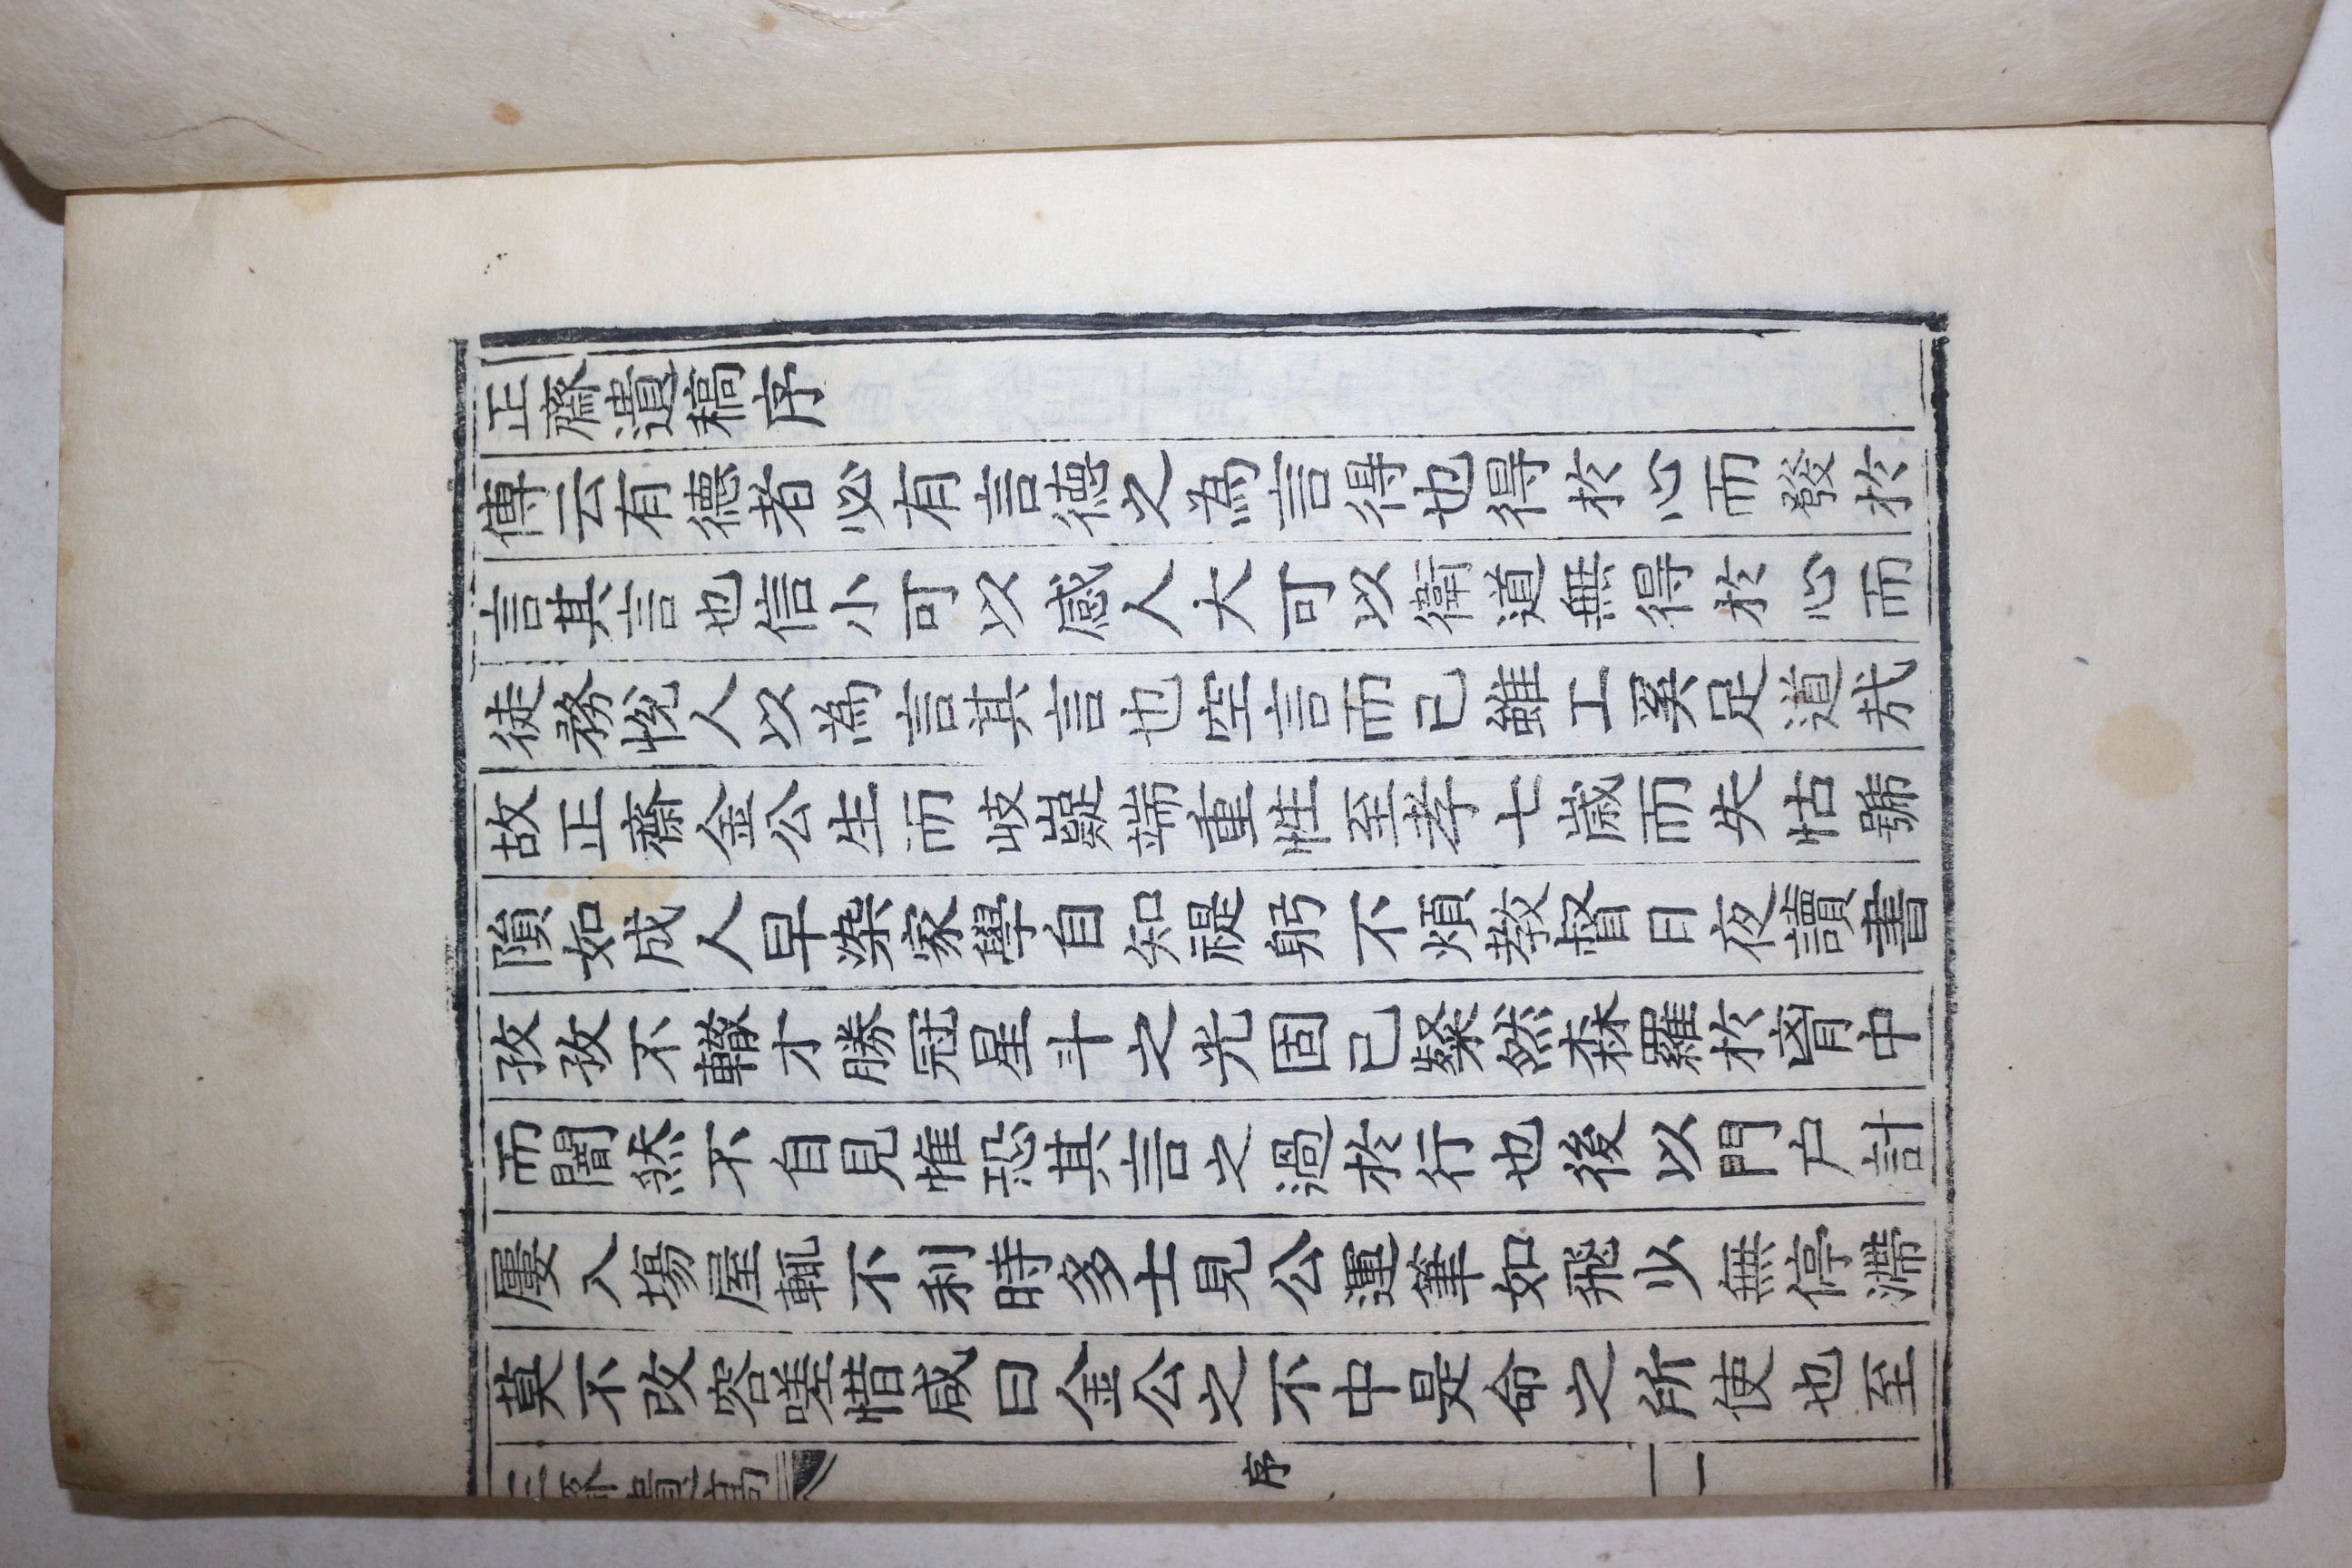 正齋遺稿序
傳云有德者必有言德之為言得也得於心而發於
言其言也信小可以感人大可以衛道無得於心而
徒務悅人以為言其言也空言而已雖工奚足道哉
故正齋金公生而岐嶷端重性至孝七歲而失怙號
隕如成人早染家學自知禔躬不煩教督日夜讀書
孜孜不轍才勝冠星斗之光固已粲然森羅於胷中
而闇然不自見惟恐其言之過於行也後以門户計
屢入塲屋輒不利時多士見公運筆如飛少無停滯
莫不改容嗟惜咸曰金公之不中是命之所使也至
正齋遺稿 序 一